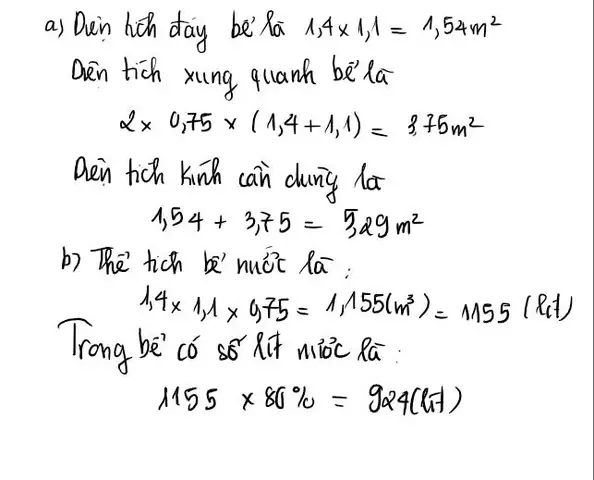 a) Diện tích đáy bể là 1,4 x 1,1 = 1,54 m²
Diện tích xung quanh bể là
2 x 0,75 x (1,4 + 1,1) = 3,75m²
Diện tích kính cần dùng là
1,54 + 3,75 = 5,29 m²
b) Thể tích bể nước là :
1,4 x 1,1 x 0,75 = 1,155(m³) = 1155 (lít)
Trong bể có số lít nước là :
1155 x 80% = 924(lít)